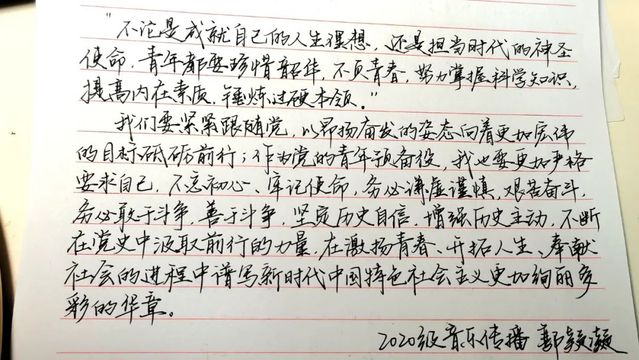 “不论是成就自己的人生理想，还是担当时代的神圣
使命，青年都要珍惜韶华、不负青春，努力掌握科学知识，
提高内在素质，锤炼过硬本领。”
我们要紧紧跟随党，以昂扬奋发的姿态向着更加宏伟
的目标砥砺前行；作为党的青年预备役，我也要更加严格
要求自己，不忘初心、牢记使命，务必谦虚谨慎、艰苦奋斗，
务必敢于斗争、善于斗争，坚定历史自信，增强历史主动，不断
在党史中汲取前行的力量，在激扬青春、开拓人生、奉献
社会的进程中谱写新时代中国特色社会主义更加绚丽多
彩的华章。
2020级音乐传播 鄢颢灏